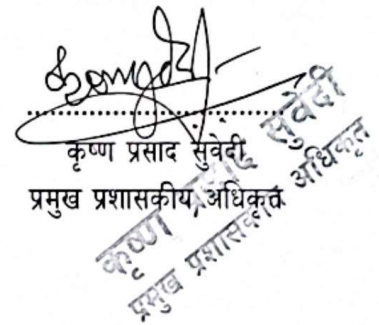 कृष्ण प्रसाद सुवेदी
प्रमुख प्रशासकीय अधिकृत
कृष्ण प्रसाद सुवेदी
प्रमुख प्रशासकीय अधिकृत